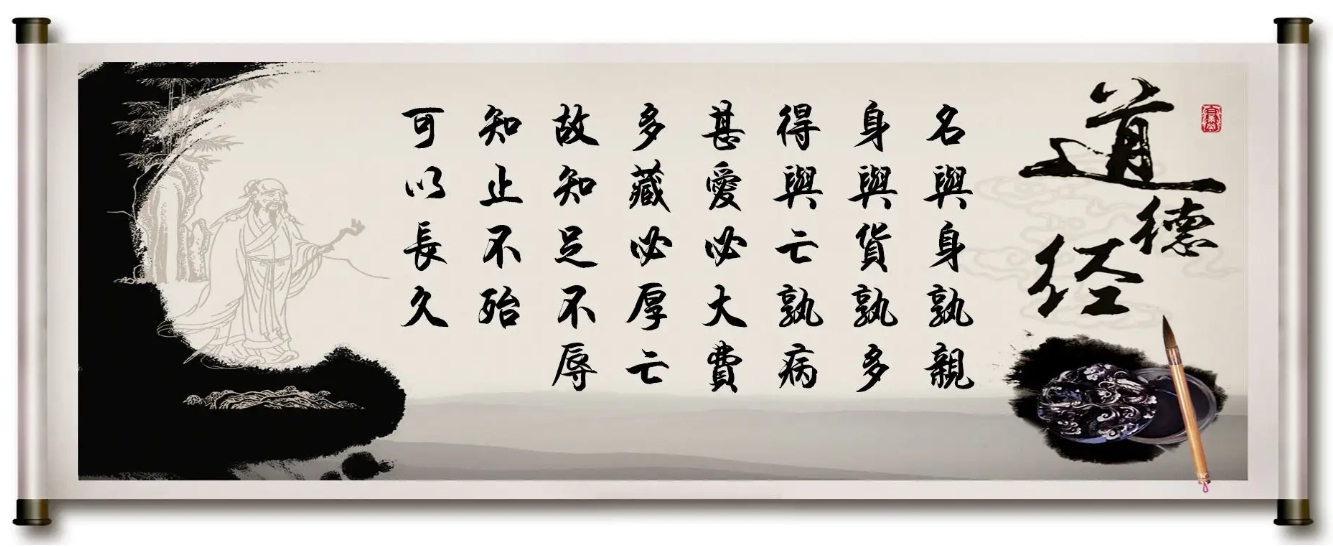 道德经
名與身孰親
身與貨孰多
得與亡孰病
甚愛必大費
多藏必厚亡
故知足不辱
知止不殆
可以長久